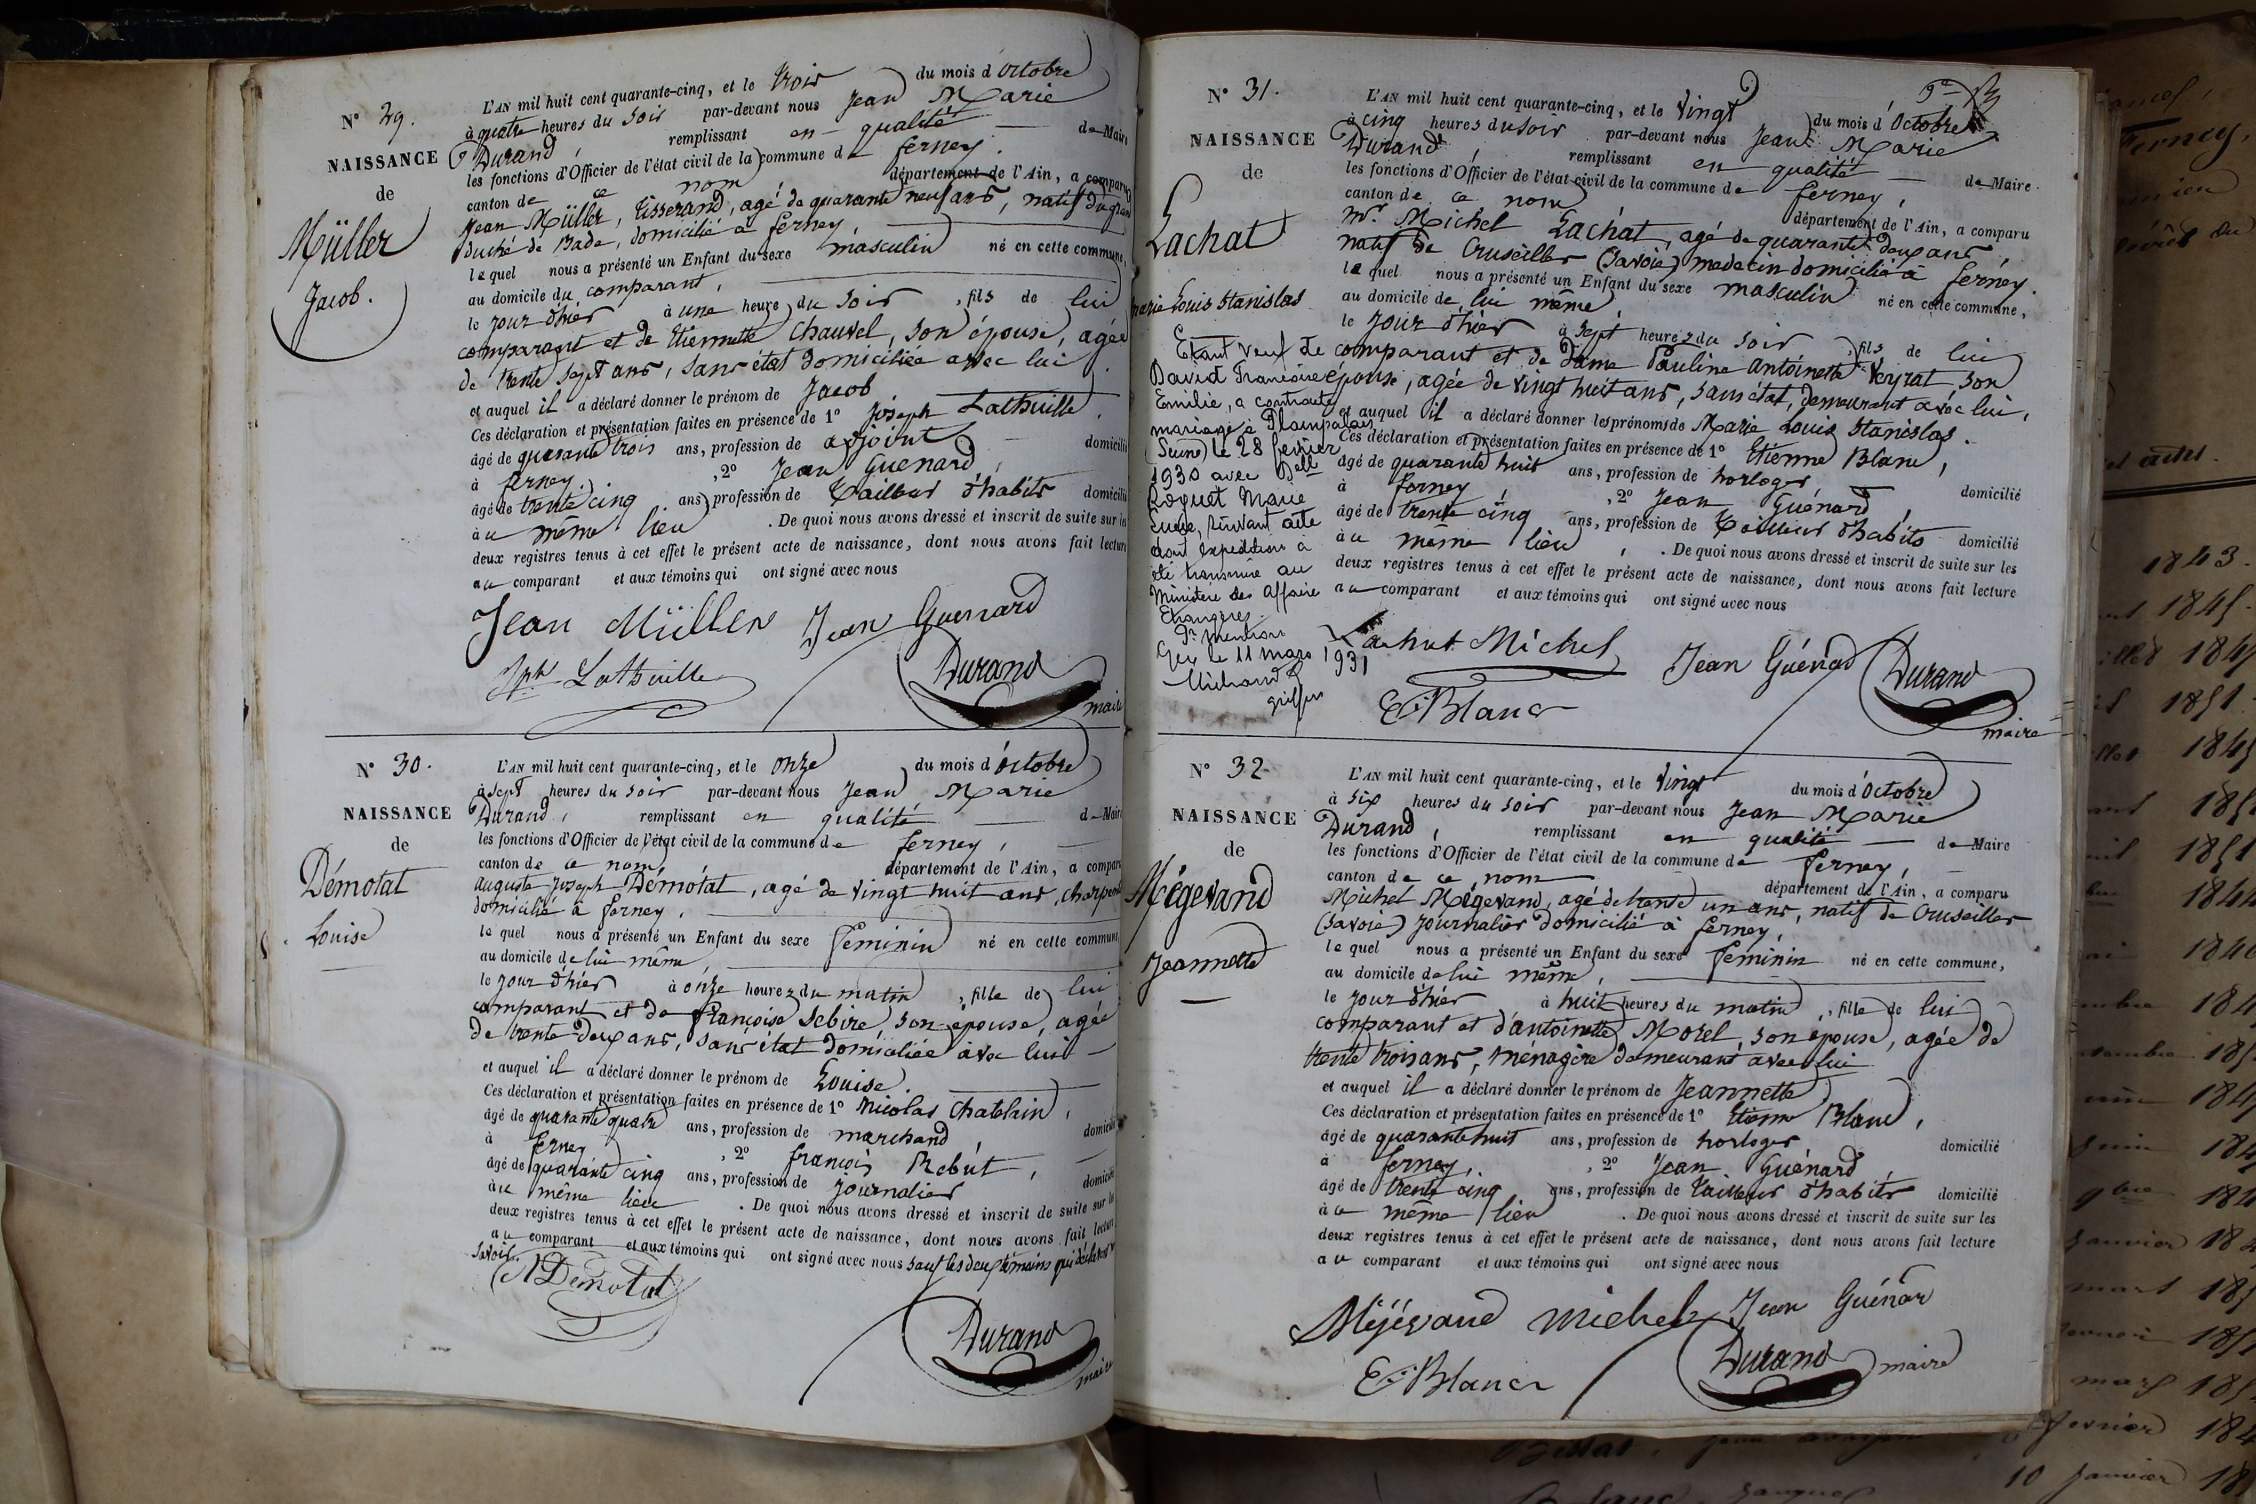 N° 29.
NAISSANCE
de
Müller
Jacob.
L'AN mil huit cent quarante-cinq, et le trois du mois d'Octobre
à quatre heures du soir par-devant nous Jean Marie
Durand, remplissant en qualité de Maire
les fonctions d'Officier de l'état civil de la commune de ferney.
canton de ce nom département de l'Ain, a comparu
Jean Müller, tisserand, agé de quarante neuf ans, natif du grand
duché de Bade, domicilié à ferney,
lequel nous a présenté un Enfant du sexe masculin né en cette commune,
au domicile du comparant,
le jour d'hier à une heure du soir, fils de lui
comparant et de Etiennette Chauvel, son épouse, agée
de trente sept ans, sans état domiciliée avec lui.
et auquel il a déclaré donner le prénom de Jacob
Ces déclaration et présentation faites en présence de 1° Joseph Lathuille,
âgé de quarante trois ans, profession de adjoint domicilié
à ferney, 2° Jean Guenard,
âgé de trente cinq ans, profession de tailleur d'habits domicilié
au même lieu . De quoi nous avons dressé et inscrit de suite sur les
deux registres tenus à cet effet le présent acte de naissance, dont nous avons fait lecture
au comparant et aux témoins qui ont signé avec nous
Jean Müller Jean Guenard
Jph Lathuille Durand
maire
N° 30.
NAISSANCE
de
Démotat
Louise
L'AN mil huit cent quarante-cinq, et le onze du mois d'octobre
à sept heures du soir par-devant nous Jean Marie
Durand, remplissant en qualité de Maire
les fonctions d'Officier de l'état civil de la commune de ferney,
canton de ce nom département de l'Ain, a comparu
auguste Joseph Démotat, agé de vingt huit ans, charpentier
domicilié à ferney,
lequel nous a présenté un Enfant du sexe féminin né en cette commune
au domicile de lui même,
le jour d'hier à onze heures du matin, fille de lui
comparant et de françoise Sebire, son épouse, agée
de trente deux ans, sans état domiciliée avec lui
et auquel il a déclaré donner le prénom de Louise.
Ces déclaration et présentation faites en présence de 1° nicolas chatelain,
âgé de quarante quatre ans, profession de marchand domicilié
à ferney, 2° françois Rebut,
âgé de quarante cinq ans, profession de journalier domicilié
au même lieu . De quoi nous avons dressé et inscrit de suite sur les
deux registres tenus à cet effet le présent acte de naissance, dont nous avons fait lecture
au comparant et aux témoins qui ont signé avec nous sauf les deux témoins qui
savoir.
ADémotat
Durand
maire
N° 31.
NAISSANCE
de
Lachat
marie Louis Stanislas
Etant veuf de
David Francoise
Emilie, a contracté
mariage à
(Seine) le 28 février
1930 avec Delle
Roguet Marie
suivant acte
dont expédition a
été transmise au
Ministère des Affaires
Etrangères
Pr mention
Gex le 11 mars 1931
L'AN mil huit cent quarante-cinq, et le Vingt du mois d'Octobre
à cinq heures du soir par-devant nous Jean Marie
Durand, remplissant en qualité de Maire
les fonctions d'Officier de l'état civil de la commune de ferney,
canton de ce nom département de l'Ain, a comparu
mr. Michel Lachat, agé de quarante deux ans
natif de Cruseilles (Savoie) medecin domicilié à ferney.
lequel nous a présenté un Enfant du sexe masculin né en cette commune,
au domicile de lui même,
le jour d'hier à sept heures du soir, fils de lui
comparant et de Dame Pauline Antoinette Veyrat, son
épouse, agée de vingt huit ans, sans état, demeurant avec lui,
et auquel il a déclaré donner les prénoms de Marie Louis Stanislas.
Ces déclaration et présentation faites en présence de 1° Etienne Blanc,
âgé de quarante huit ans, profession de horloger domicilié
à ferney, 2° Jean Guénard,
âgé de trente cinq ans, profession de tailleur d'habits domicilié
au même lieu, . De quoi nous avons dressé et inscrit de suite sur les
deux registres tenus à cet effet le présent acte de naissance, dont nous avons fait lecture
au comparant et aux témoins qui ont signé avec nous
Lachat Michel Jean Guénard Durand
E. Blanc
maire
N° 32
NAISSANCE
de
Mégevand
Jeannette
L'AN mil huit cent quarante-cinq, et le vingt du mois d'Octobre
à six heures du soir par-devant nous Jean Marie
Durand, remplissant en qualité de Maire
les fonctions d'Officier de l'état civil de la commune de ferney,
canton de ce nom département de l'Ain, a comparu
Michel Mégevand, agé de trente un ans, natif de Cruseilles
(Savoie) journalier domicilié à ferney,
lequel nous a présenté un Enfant du sexe féminin né en cette commune,
au domicile de lui même,
le jour d'hier à huit heures du matin, fille de lui
comparant et d'antoinette Morel, son épouse, agée de
trente trois ans, ménagère demeurant avec lui
et auquel il a déclaré donner le prénom de Jeannette
Ces déclaration et présentation faites en présence de 1° Etienne Blanc,
âgé de quarante huit ans, profession de horloger domicilié
à ferney, 2° Jean Guénard,
âgé de trente cinq ans, profession de tailleur d'habits domicilié
au même lieu . De quoi nous avons dressé et inscrit de suite sur les
deux registres tenus à cet effet le présent acte de naissance, dont nous avons fait lecture
au comparant et aux témoins qui ont signé avec nous
Méjévand Michel Jean Guénard
E. Blanc Durand maire
Ferney,
1843.
1845.
1851
10 janvier